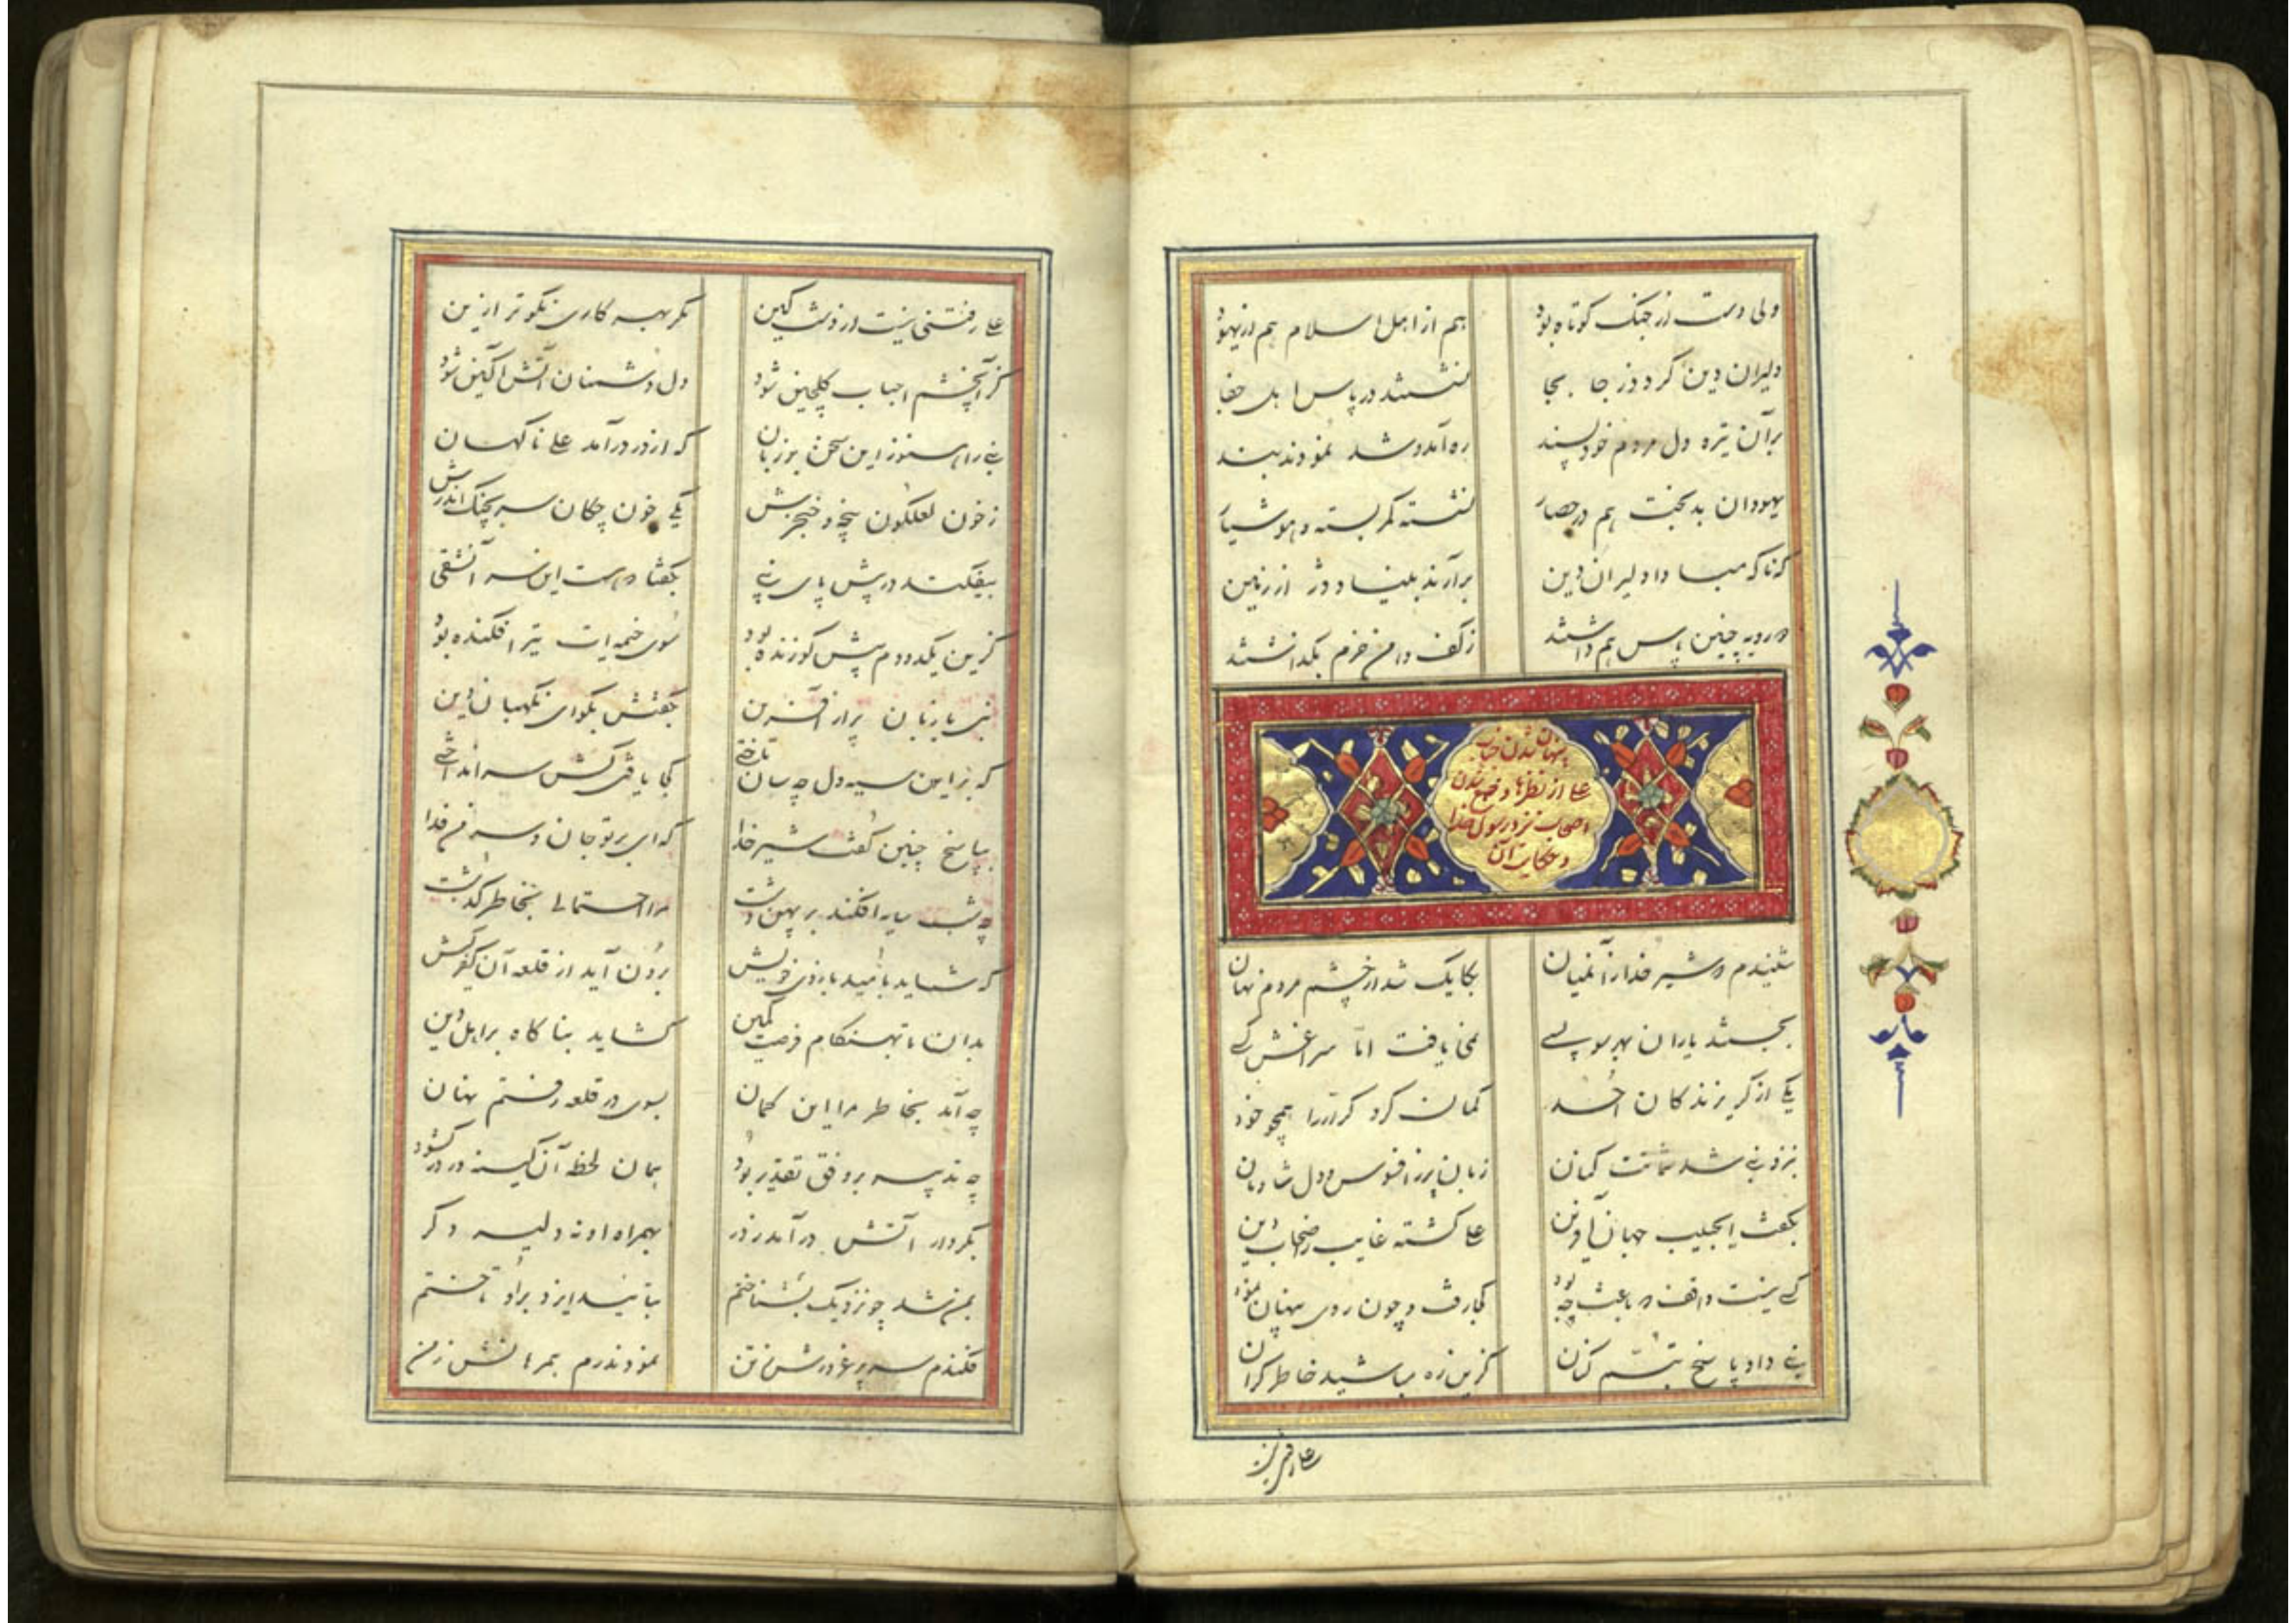 ولی دست از جنک کوتاه بود هم از اهل اسلام هم از یهود
دلیران دین کرد دز جا بجا نشستند در پاس اهل جفا
بر آن تیره دل مردم خودپسند ره آمد و شد نمودند بند
یهودان بدبخت هم در حصار نشسته کمر بسته و هوشیار
که ناکه مبادا دلیران دین برآرند بنیاد دژ از زمین
دو رویه چنین پاس هم داشتند ز کف دامن حزم نکذاشتند
پنهان شدن جناب
علی از نظرها و جمع شدن
اصحاب نزد رسول خدا
و حکایت آن
شنیدم که شیر خدا زآنمیان بکایک شد از چشم مردم نهان
بجستند یاران بهر سو بسی نمی یافت اما سراغش کسی
یکی از کریزندکان احد کمان کرد کرار را همچو خود
بنزد نبی شد شماتت کنان زبان پر ز افسوس و دل شادمان
بکفت ای حبیب جهان آفرین علی کشته غایب ز اصحاب دین
کسی نیست واقف که باعث چه بود کجا رفت و چون روی پنهان نمود
نبی داد پاسخ تبسم کنان کزین ره مباشید خاطر کران
علی رفتنی نیست از دشت کین مکر بهر کاری نکوتر ازین
کز آن چشم احباب کلچین شود دل دشمنان آتش آکین شود
نبی را هنوز این سخن بر زبان که از در درآمد علی ناکهان
ز خون لعلکون پنجه و خنجرش یکی خون چکان سر بچنک اندرش
بیفکند در پیش پای نبی بکفتا که هست این سر آن شقی
کزین یکدو دم پیش کو زنده بود سوی خیمه ات تیر افکنده بود
نبی با زبان پر از آفرین بکفتش بکو ای نکهبان دین
که بر این سیه دل چه سان تاختی کجا یافتی کش سر انداختی
بپاسخ چنین کفت شیر خدا که ای بر تو جان و سر من فدا
چه شب سایه افکند بر پهن دشت مرا احتمالی بخاطر کذشت
که شاید بامید بازوی خویش برون آید از قلعه آن کفرکیش
بدان تا بهنکام فرصت کمین کشاید بناکاه بر اهل دین
چه آمد بخاطر مرا این کمان بسوی در قلعه رفتم نهان
چه تدبیر بر وفق تقدیر بود همان لحظه آن کینه ور در کشود
بکردار آتش درآمد ز در بهمراه او نه دلیر دکر
بمن شد چو نزدیک بشناختم بتایید ایزد بر او تاختم
فکندم سر پر غرورش ز تن نمودند رم همرهانش ز من
علی رفتنی